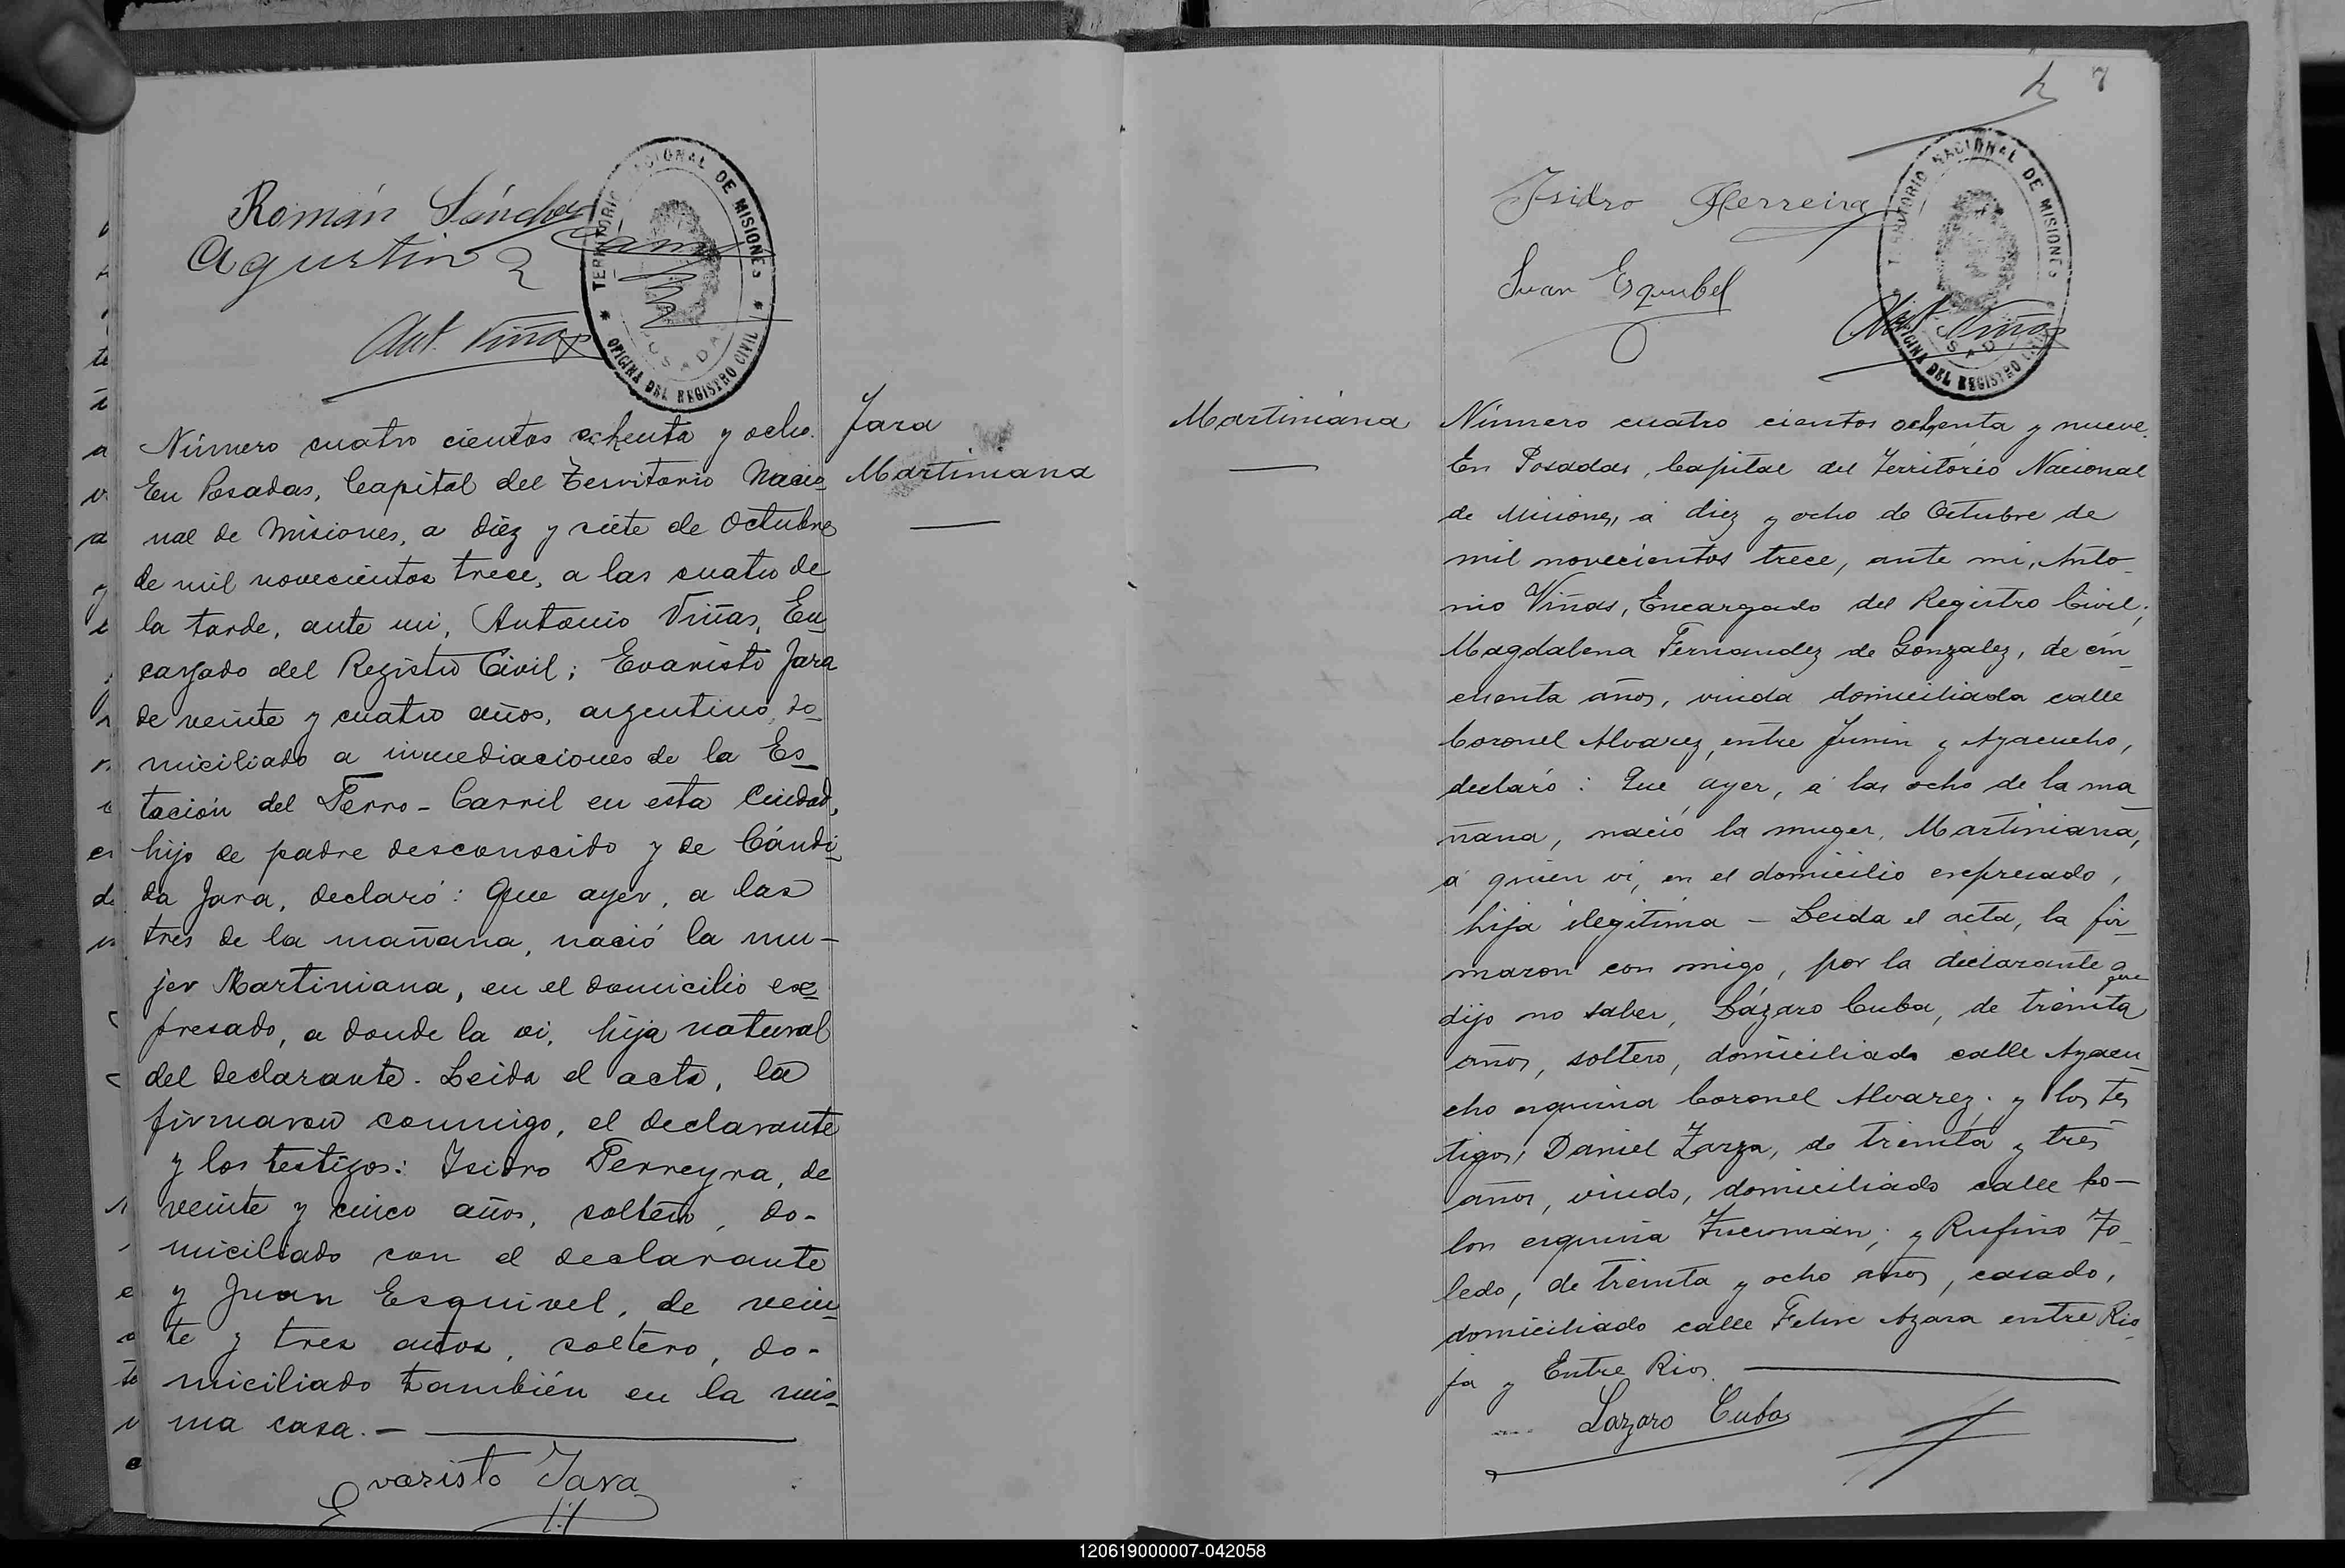 Román Sánchez
Agustin
Ant. Viñas
TERRITORIO NACIONAL DE MISIONES
POSADAS
OFICINA DEL REGISTRO CIVIL
Jara
Martiniana
Número cuatro cientos ochenta y ocho.
En Posadas, Capital del Territorio Nacio
nal de Misiones, a diez y siete de Octubre
de mil novecientos trece, a las cuatro de
la tarde, ante mi, Antonio Viñas, En
cargado del Registro Civil; Evaristo Jara
de veinte y cuatro años, argentino, do
miciliado a inmediaciones de la Es
tación del Ferro-Carril en esta Ciudad,
hijo de padre desconocido y de Cándi
da Jara, declaró: Que ayer, a las
tres de la mañana, nació la mu-
jer Martiniana, en el domicilio ex
presado, a donde la vi, hija natural
del declarante. Leida el acta, la
firmaron conmigo, el declarante
y los testigos: Isidro Ferreyra, de
veinte y cinco años, soltero, do-
miciliado con el declarante
y Juan Esquivel, de vein
te y tres años, soltero, do-
miciliado también en la mis
ma casa.-
Evaristo Jara
7
Isidro Ferreira
Juan Esquibel
TERRITORIO NACIONAL DE MISIONES
POSADAS
OFICINA DEL REGISTRO CIVIL
Ant. Viñas
Martiniana
Número cuatro cientos ochenta y nueve.
En Posadas, Capital del Territorio Nacional
de Misiones, á diez y ocho de Octubre de
mil novecientos trece, ante mi, Anto
nio Viñas, Encargado del Registro Civil;
Magdalena Fernandez de Gonzalez, de cin
cuenta años, viuda domiciliada calle
Coronel Alvarez, entre Junin y Ayacucho,
declaró: Que ayer, á las ocho de la ma
ñana, nació la muger, Martiniana,
á quien vi, en el domicilio expresado,
hija ilegitima - Leida el acta, la fir
maron con migo, por la declarante que
dijo no saber, Lázaro Cuba, de treinta
años, soltero, domiciliado calle Ayacu
cho esquina Coronel Alvarez; y los tes
tigos; Daniel Zarza, de treinta y tres
años, viudo, domiciliado calle Co-
lon esquina Tucumán; y Rufino To
ledo, de treinta y ocho años, casado,
domiciliado calle Felix Azara entre Rio
ja y Entre Rios.
Lazaro Cubas
120619000007-042058